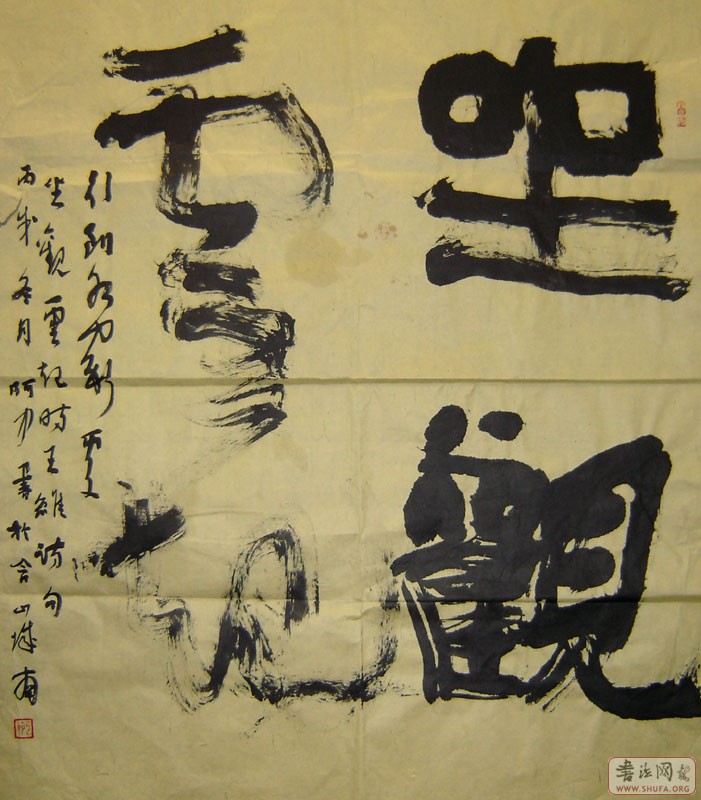 坐觀
雲起
行到水
坐觀雲起時王維詩句
丙戌冬月阿力書於含山城南
書法网
WWW.SHUFA.ORG